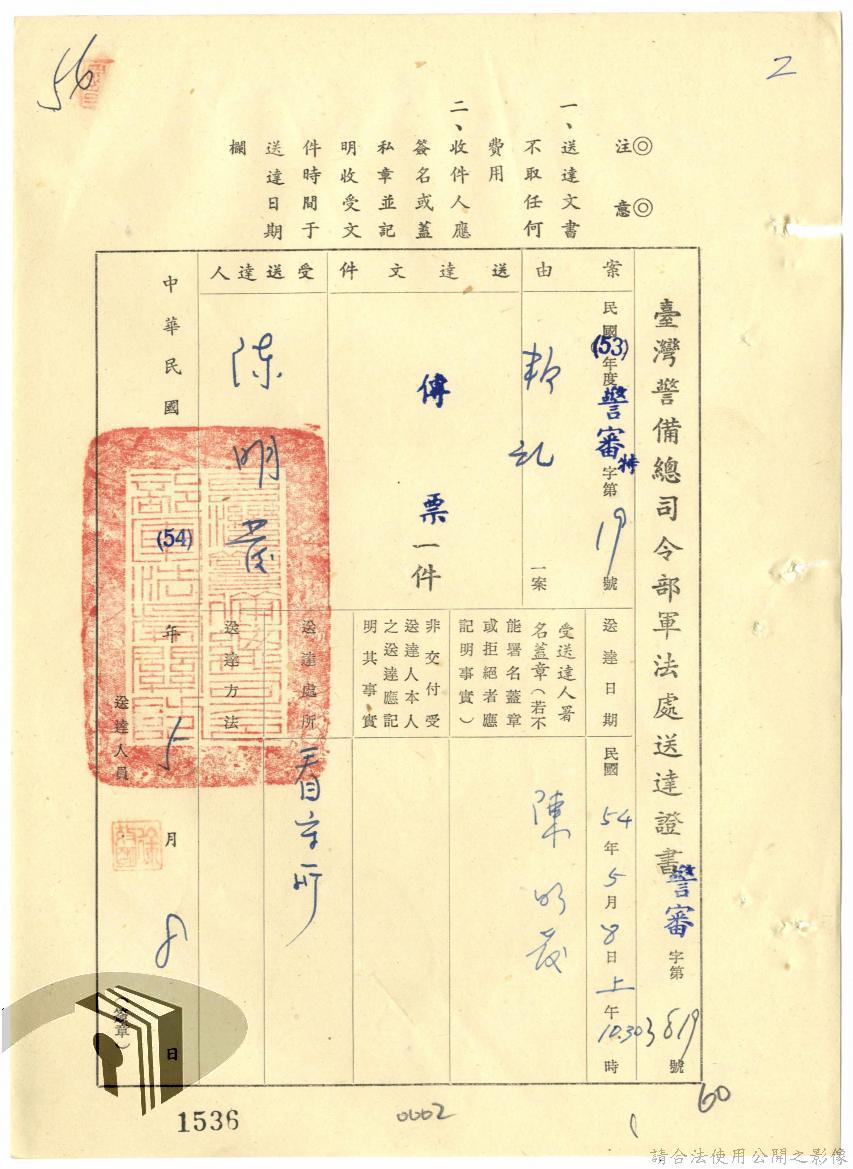 56
2
◎注意◎
一、送達文書
不取任何
費用
二、收件人應
簽名或蓋
私章並記
明收受文
件時間于
送達日期
欄
臺灣警備總司令部軍法處送達證書 警審字第3819號
案由
民國(53)年度警審特字第19號
叛亂一案
送達文件
傳票一件
受送達人
陳明發
送達日期
民國54年5月8日上午10.30時
受送達人署
名蓋章(若不
能署名蓋章
或拒絕者應
記明事實)
陳明發
非交付受
送達人本人
之送達應記
明其事實
送達處所
看守所
送達方法
中華民國(54)年5月8日
送達人員
(簽章)
1536
0002
60
請合法使用公開之影像